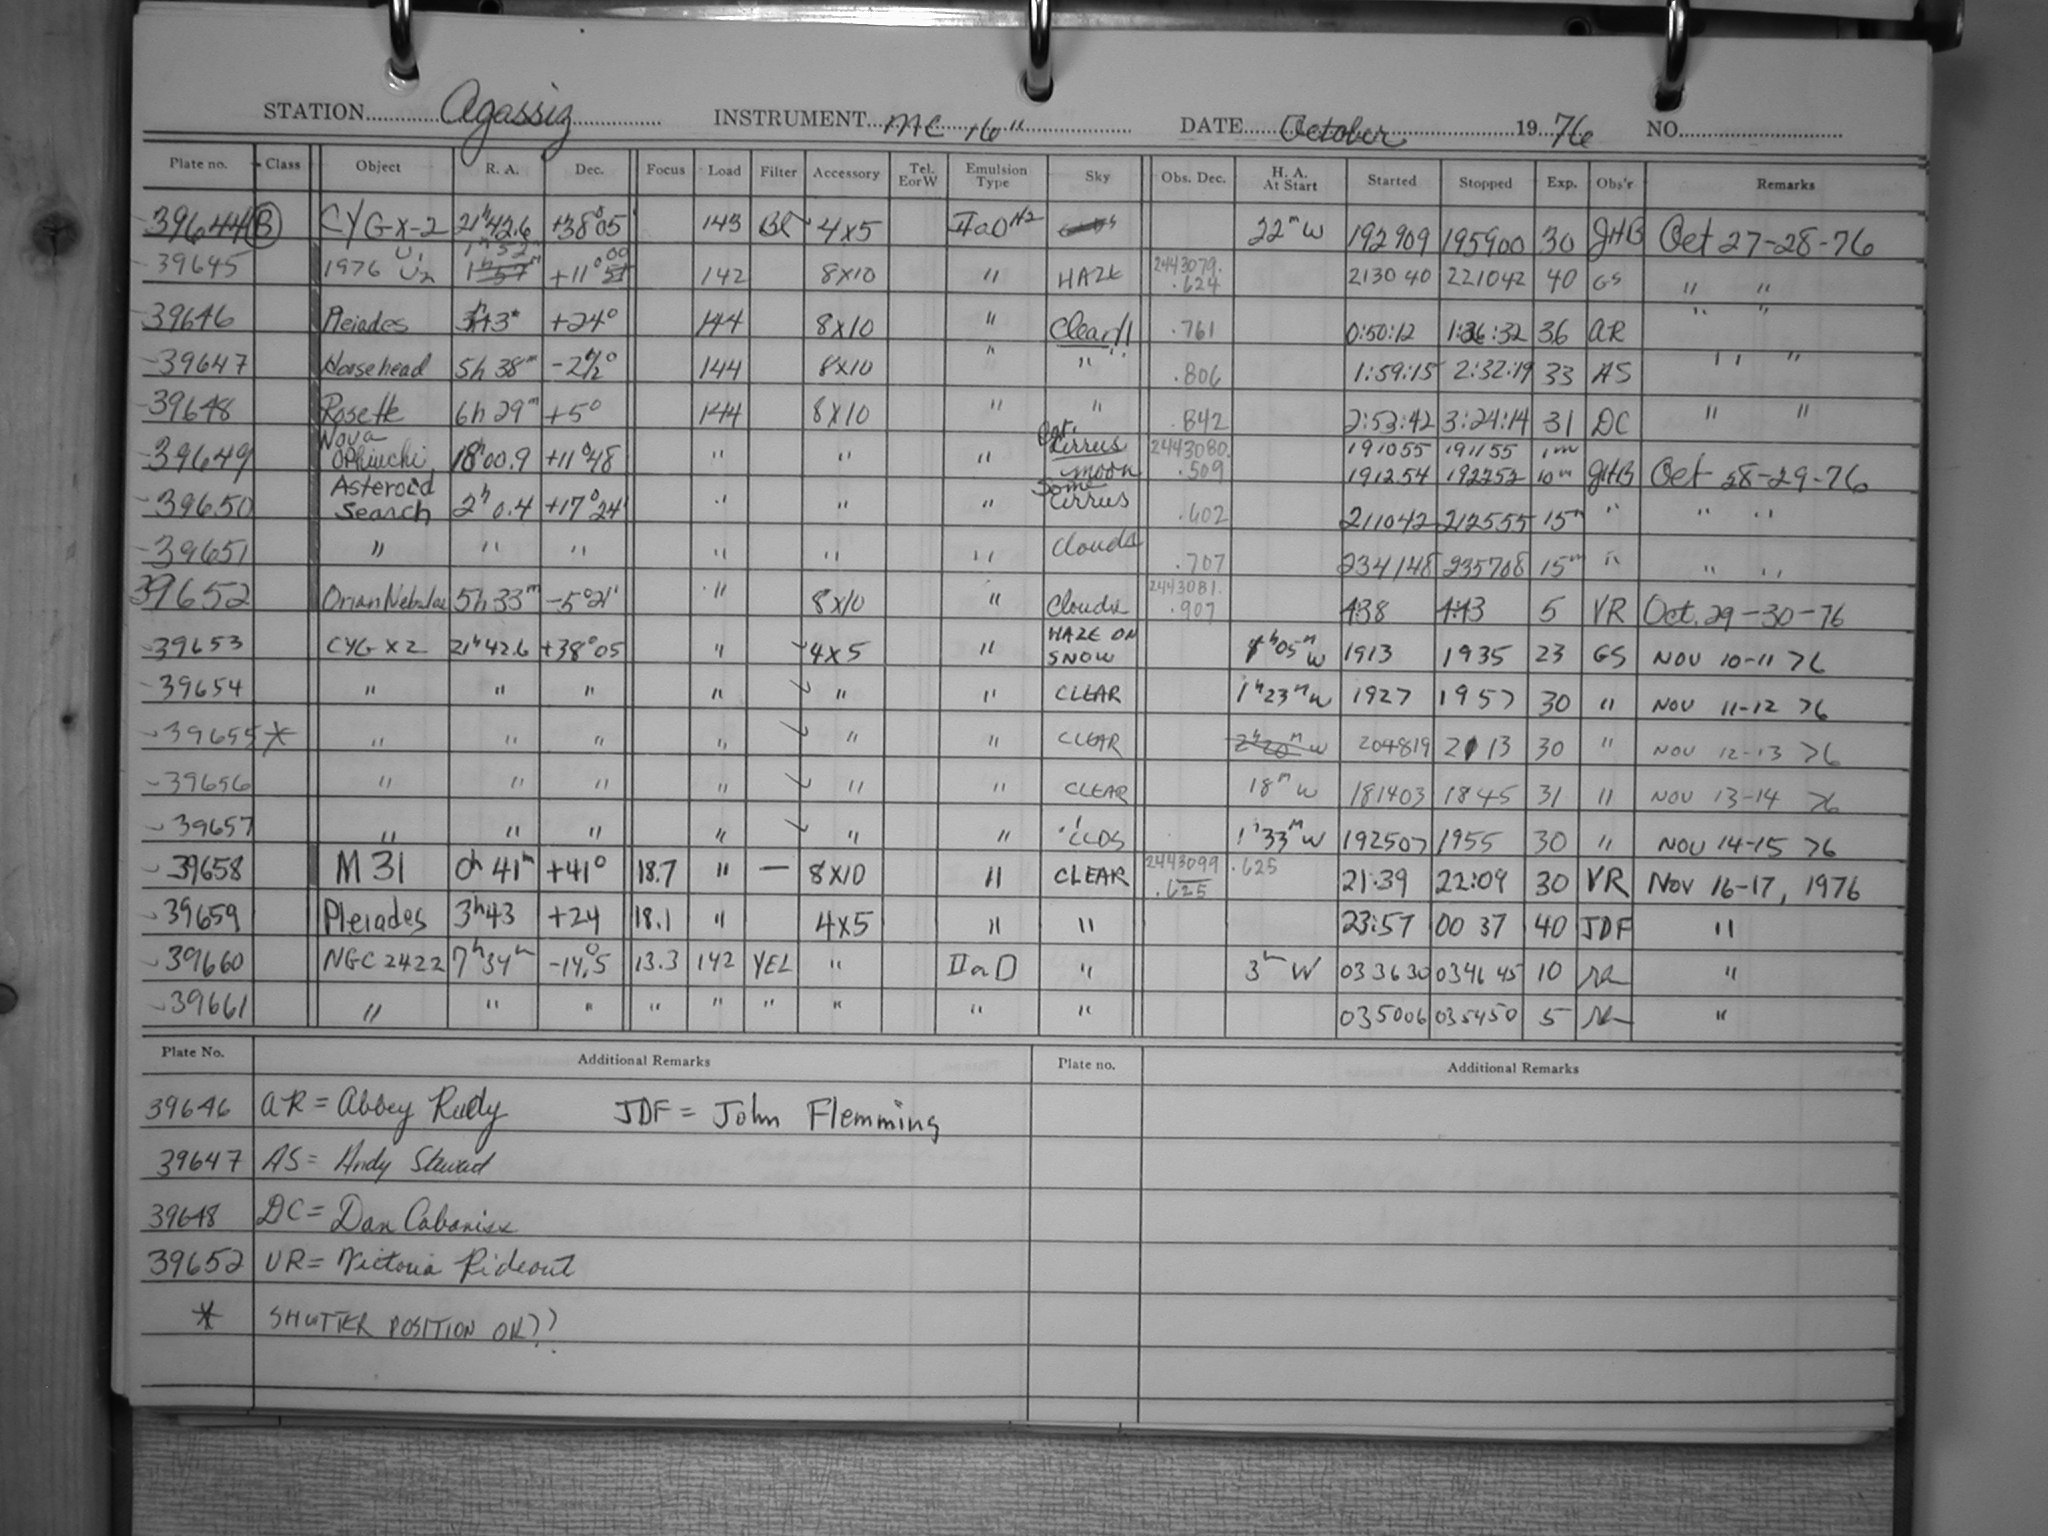 STATION Agassiz INSTRUMENT MC 16" DATE October 1976 NO.
Plate no. Class Object R. A. Dec. Focus Load Filter Accessory Tel. E or W Emulsion Type Sky Obs. Dec. H. A. At Start Started Stopped Exp. Obs'r Remarks
39644 B CYG X-2 21h42.6 +38°05 143 BL 4x5 IIaO N2 22m W 192909 195900 30 JHB Oct 27-28-76
39645 1976 U1 U2 1h52m 1h57m +11°00 142 8x10 " HAZE 2443079. .624 213040 221042 40 GS " "
39646 Pleiades 3h43m +24° 144 8x10 " Clear!! .761 0:50:12 1:26:32 36 AR " "
39647 Horsehead 5h 38m -2½° 144 8x10 " " .806 1:59:15 2:32:19 33 AS " "
39648 Rosette 6h 29m +5° 144 8x10 " " .842 2:53:42 3:24:14 31 DC " "
39649 Nova Ophiuchi 18h00.9 +11°48 " " " Cirrus moon 2443080. .509 191055 191155 1m
191254 192252 10m JHB Oct 28-29-76
39650 Asteroid Search 2h 0.4 +17°24' " " " Some Cirrus .602 211042 212555 15m " " "
39651 " " " " " " Clouds .707 234148 235708 15m " " "
39652 Orian Nebulae 5h 33m -5°21' " 8x10 " Clouds 2443081. .907 438 4:43 5 VR Oct. 29-30-76
39653 CYG X2 21h42.6 +38°05 " 4x5 " HAZE ON SNOW 1h05m W 1913 1935 23 GS NOV 10-11 76
39654 " " " " " " CLEAR 1h23m W 1927 1957 30 " NOV 11-12 76
39655 * " " " " " " CLEAR 2h20m W 204819 2113 30 " NOV 12-13 76
39656 " " " " " " CLEAR 18m W 181403 1845 31 " NOV 13-14 76
39657 " " " " " " CLDS 1h33m W 192507 1955 30 " NOV 14-15 76
39658 M 31 0h 41m +41° 18.7 " — 8x10 " CLEAR 2443099 .625 .625 21:39 22:09 30 VR Nov 16-17, 1976
39659 Pleiades 3h43 +24 18.1 " 4x5 " " 23:57 00 37 40 JDF "
39660 NGC 2422 7h34m -14°.5 13.3 142 YEL " IIaD " 3h W 033630 034645 10 "
39661 " " " " " " " " " 035006 035450 5 "
Plate No. Additional Remarks Plate no. Additional Remarks
39646 AR = Abbey Rudy JDF = John Flemming
39647 AS = Andy Steward
39648 DC = Dan Cabaniss
39652 VR = Victoria Rideout
* SHUTTER POSITION OK??